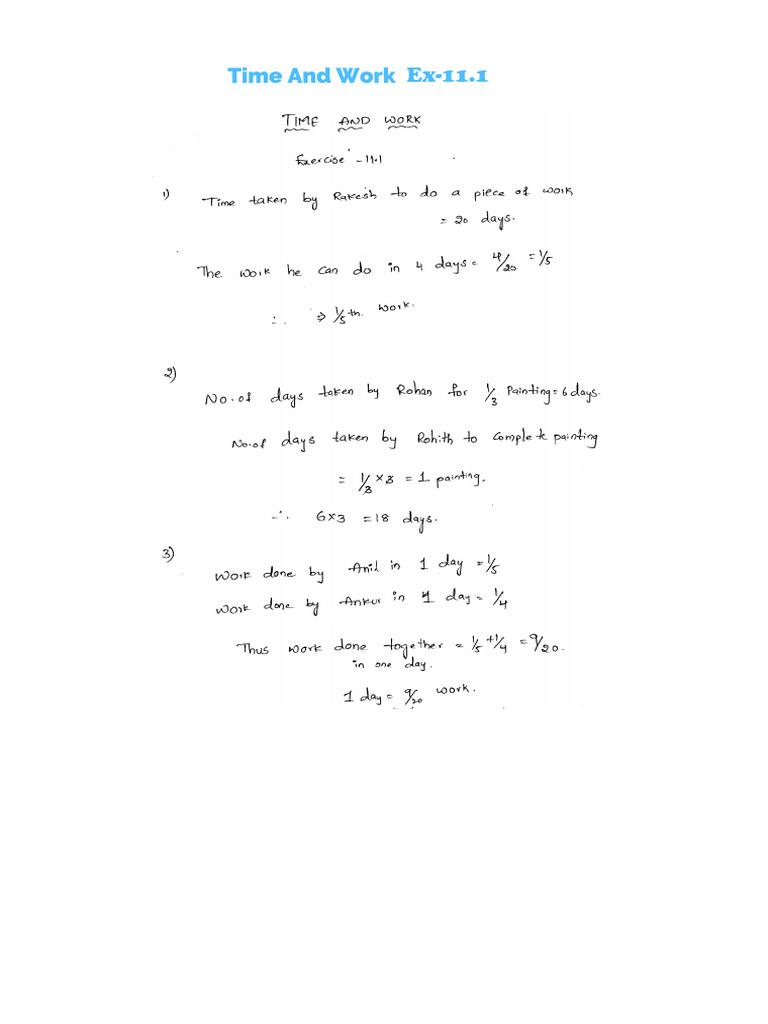 Time And Work Ex-11.1
TIME AND WORK
Exercise - 11.1
1) Time taken by Rakesh to do a piece of work
= 20 days.
The work he can do in 4 days = 4/20 = 1/5
∴ ⇒ 1/5th work.
2)
No. of days taken by Rohan for 1/3 Painting = 6 days.
No. of days taken by Rohith to complete painting
= 1/3 × 3 = 1 painting.
∴ 6×3 = 18 days.
3)
Work done by Anil in 1 day = 1/5
Work done by Ankur in 1 day = 1/4
Thus work done together = 1/5 + 1/4 = 9/20.
in one day.
1 day = 9/20 work.